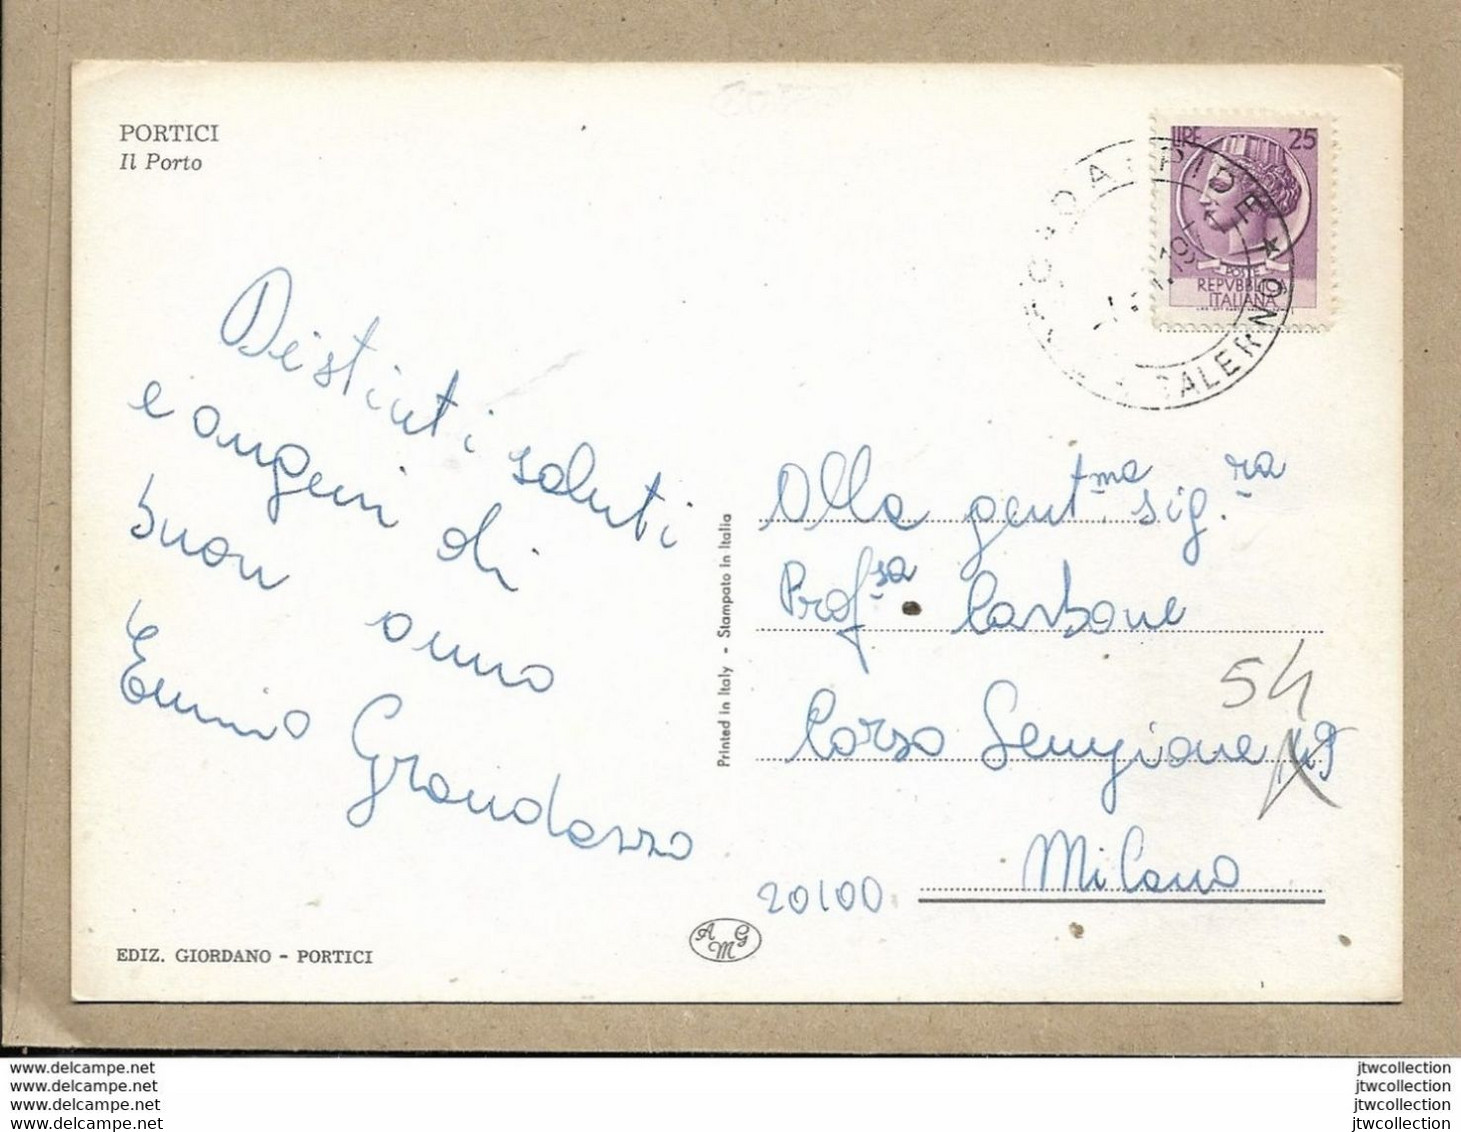 PORTICI
Il Porto
LIRE 25
POSTE
REPVBBLICA
ITALIANA
SALERNO
Distinti saluti
e auguri di
buon anno
Ennio Grandazzo
Alla gent.ma sig.ra
Prof.sa Carbone
54
Corso Sempione
Milano
20100
Printed in Italy - Stampato in Italia
A M G
EDIZ. GIORDANO - PORTICI
www.delcampe.net
www.delcampe.net
www.delcampe.net
www.delcampe.net
jtwcollection
jtwcollection
jtwcollection
jtwcollection